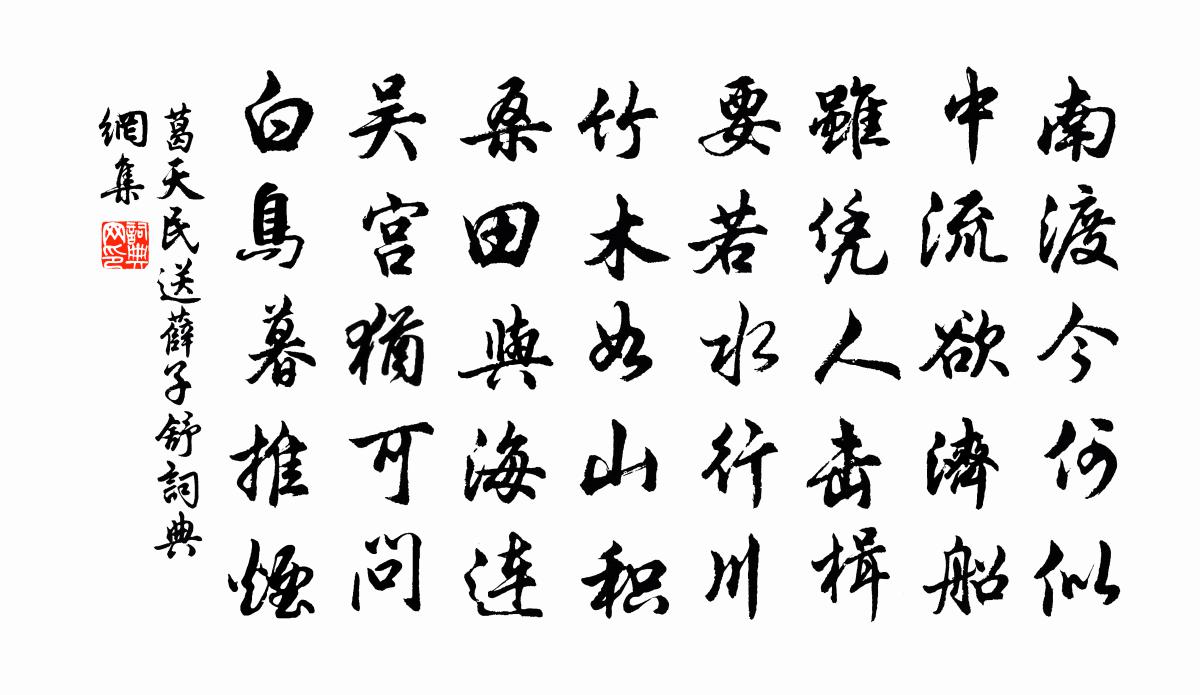 南渡今何似
中流欲濟船
雖凭人击楫
要若水行川
竹木如山积
桑田與海連
吴宫猶可問
白鳥暮推煙
葛天民送薛子舒詞典
網集
詞典網印